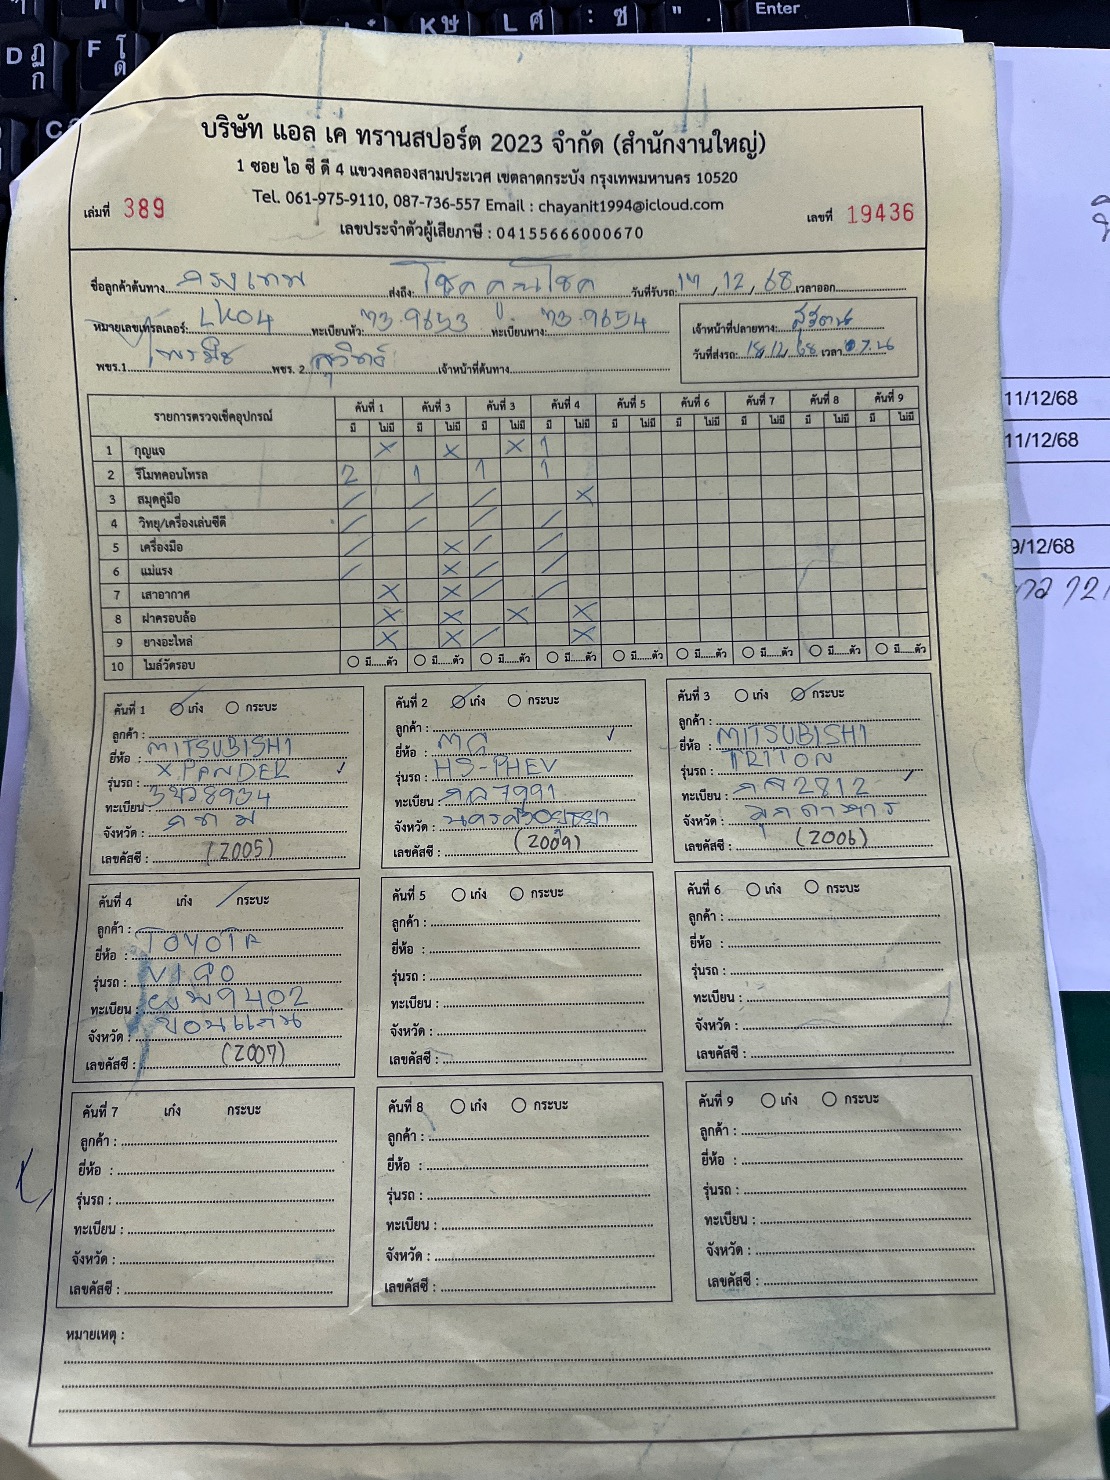 บริษัท แอล เค ทรานสปอร์ต 2023 จำกัด (สำนักงานใหญ่)
1 ซอย ไอ ซี ดี 4 แขวงคลองสามประเวศ เขตลาดกระบัง กรุงเทพมหานคร 10520
Tel. 061-975-9110, 087-736-557 Email : chayanit1994@icloud.com
เล่มที่ 389 เลขประจำตัวผู้เสียภาษี : 04155666000670 เลขที่ 19436
ชื่อลูกค้าต้นทาง ส่งถึง: วันที่รับรถ: 17/12/68 เวลาออก
หมายเลขเทรลเลอร์: LK04 ทะเบียนหัว: 73-9653 ทะเบียนหาง: 73-9654
เจ้าหน้าที่ปลายทาง:
วันที่ส่งรถ: 18/12/68 เวลา
พขร.1 พขร. 2 เจ้าหน้าที่ต้นทาง
รายการตรวจเช็คอุปกรณ์ คันที่ 1 คันที่ 3 คันที่ 3 คันที่ 4 คันที่ 5 คันที่ 6 คันที่ 7 คันที่ 8 คันที่ 9
มี ไม่มี มี ไม่มี มี ไม่มี มี ไม่มี มี ไม่มี มี ไม่มี มี ไม่มี มี ไม่มี มี ไม่มี
1 กุญแจ X X X 1
2 รีโมทคอนโทรล 2 1 1 1
3 สมุดคู่มือ / / / X
4 วิทยุ/เครื่องเล่นซีดี / / / /
5 เครื่องมือ / X / /
6 แม่แรง / X / /
7 เสาอากาศ X X / /
8 ฝาครอบล้อ X X X X
9 ยางอะไหล่ X X / X
10 ไมล์วัดรอบ มี......ตัว มี......ตัว มี......ตัว มี......ตัว มี......ตัว มี......ตัว มี......ตัว มี......ตัว มี......ตัว
คันที่ 1 เก๋ง กระบะ
ลูกค้า :
ยี่ห้อ : MITSUBISHI
รุ่นรถ : XPANDER
ทะเบียน : 8934
จังหวัด : กทม
เลขคัสซี : (2005)
คันที่ 2 เก๋ง กระบะ
ลูกค้า :
ยี่ห้อ : MG
รุ่นรถ : HS-PHEV
ทะเบียน : 7991
จังหวัด :
เลขคัสซี : (2009)
คันที่ 3 เก๋ง กระบะ
ลูกค้า :
ยี่ห้อ : MITSUBISHI
รุ่นรถ : TRITON
ทะเบียน : 2812
จังหวัด : มุกดาหาร
เลขคัสซี : (2006)
คันที่ 4 เก๋ง กระบะ
ลูกค้า :
ยี่ห้อ : TOYOTA
รุ่นรถ : VIGO
ทะเบียน : 9402
จังหวัด : ขอนแก่น
เลขคัสซี : (2007)
คันที่ 5 เก๋ง กระบะ
ลูกค้า :
ยี่ห้อ :
รุ่นรถ :
ทะเบียน :
จังหวัด :
เลขคัสซี :
คันที่ 6 เก๋ง กระบะ
ลูกค้า :
ยี่ห้อ :
รุ่นรถ :
ทะเบียน :
จังหวัด :
เลขคัสซี :
คันที่ 7 เก๋ง กระบะ
ลูกค้า :
ยี่ห้อ :
รุ่นรถ :
ทะเบียน :
จังหวัด :
เลขคัสซี :
คันที่ 8 เก๋ง กระบะ
ลูกค้า :
ยี่ห้อ :
รุ่นรถ :
ทะเบียน :
จังหวัด :
เลขคัสซี :
คันที่ 9 เก๋ง กระบะ
ลูกค้า :
ยี่ห้อ :
รุ่นรถ :
ทะเบียน :
จังหวัด :
เลขคัสซี :
หมายเหตุ :
11/12/68
11/12/68
9/12/68
Enter